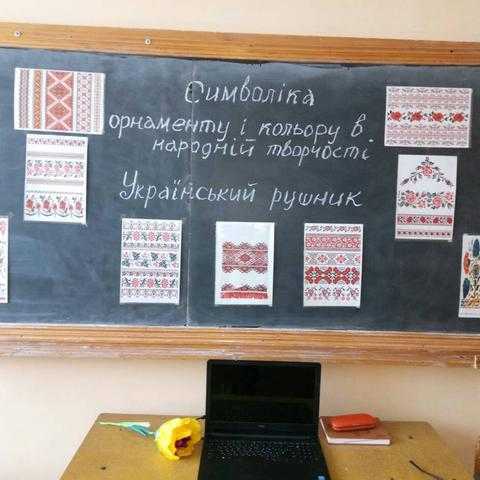 Символіка
орнаменту і кольору в
народній творчості.
Український рушник